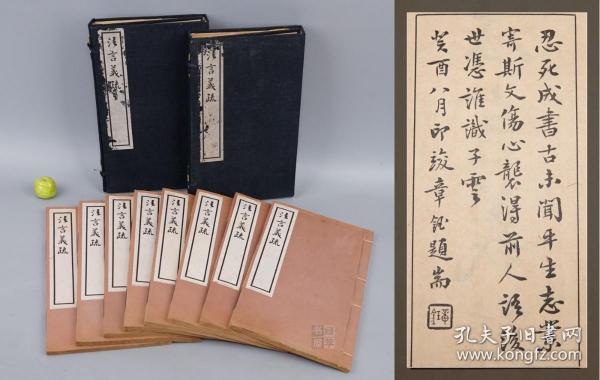 法言義疏
法言義疏
法言義疏
法言義疏
法言義疏
法言義疏
法言義疏
法言義疏
法言義疏
法言義疏
忍死成書古未聞半生志業
寄斯文傷心襲得前人語後
世憑誰識子雲
癸酉八月印竣章鈺題耑
章鈺
孔夫子旧书网
www.kongfz.com